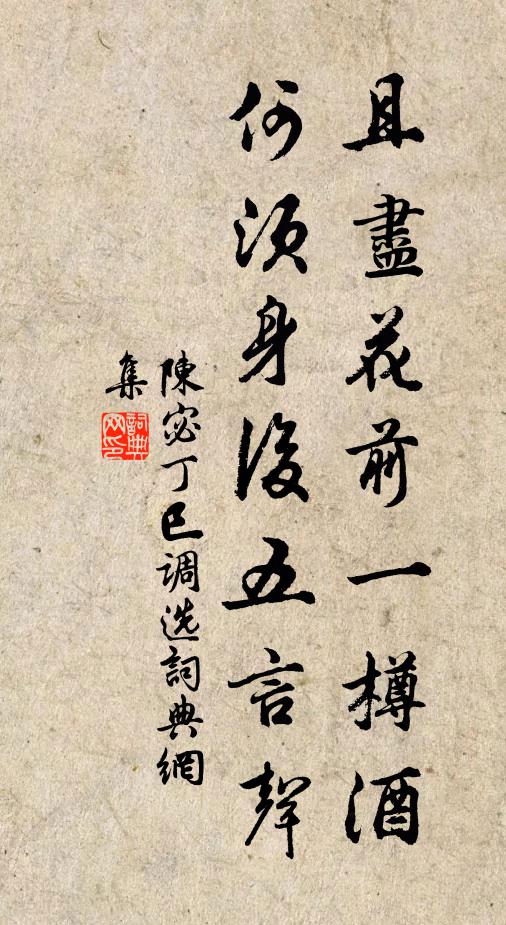 且盡花前一樽酒
何須身後五言聲
陳宓丁巳调选詞典網
集
詞典網印